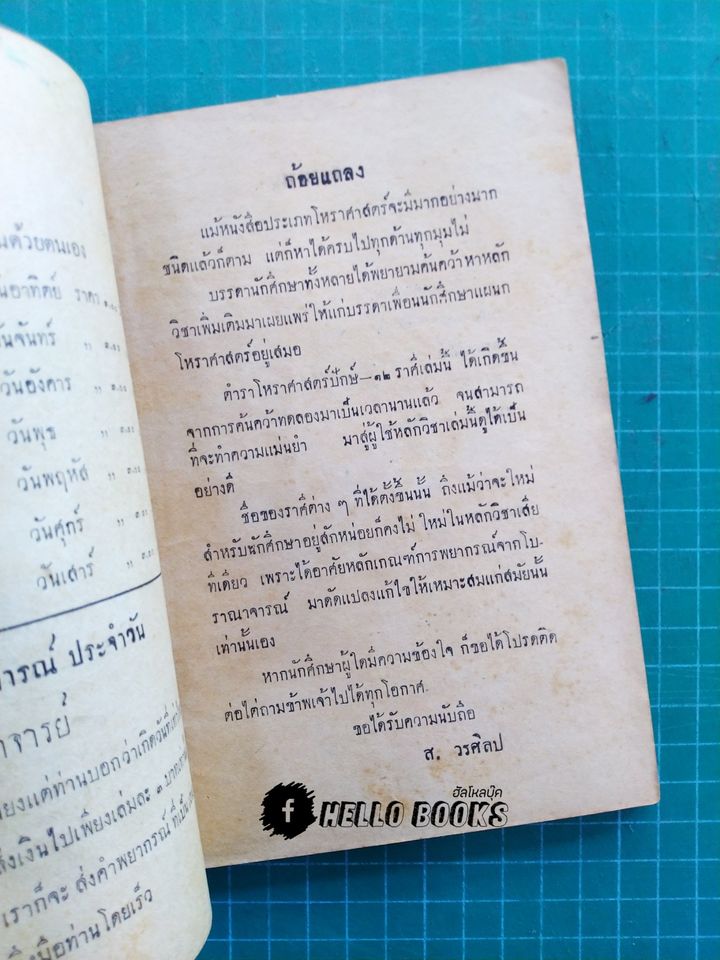 นด้วยตนเอง
นอาทิตย์ ราคา ๓.๐๐
นจันทร์ ,, ๓.๐๐
วันอังคาร ,, ๓.๐๐
วันพุธ ,, ๓.๐๐
วันพฤหัส ,, ๓.๐๐
วันศุกร์ ,, ๓.๐๐
วันเสาร์ ,, ๓.๐๐
ารณ์ ประจำวัน
าจารย์
ยงแต่ท่านบอกว่าเกิดวันที่เท่า
ส่งเงินไปเพียงเล่มละ ๓ บาท
เราก็จะ ส่งคำพยากรณ์
มือท่านโดยเร็ว
ถ้อยแถลง
แม้หนังสือประเภทโหราศาสตร์จะมีมากอย่างมาก
ชนิดแล้วก็ตาม แต่ก็หาได้ครบไปทุกด้านทุกมุมไม่
บรรดานักศึกษาทั้งหลายได้พยายามค้นคว้าหาหลัก
วิชาเพิ่มเติมมาเผยแพร่ให้แก่บรรดาเพื่อนนักศึกษาแผนก
โหราศาสตร์อยู่เสมอ
ตำราโหราศาสตร์ปักษ์—๑๒ ราศีเล่มนี้ ได้เกิดขึ้น
จากการค้นคว้าทดลองมาเป็นเวลานานแล้ว จนสามารถ
ที่จะทำความแม่นยำ มาสู่ผู้ใช้หลักวิชาเล่มนี้ดูได้เป็น
อย่างดี
ชื่อของราศีต่าง ๆ ที่ได้ตั้งขึ้นนั้น ถึงแม้ว่าจะใหม่
สำหรับนักศึกษาอยู่สักหน่อยก็คงไม่ ใหม่ในหลักวิชาเสีย
ทีเดียว เพราะได้อาศัยหลักเกณฑ์การพยากรณ์จากโบ-
ราณาจารณ์ มาดัดแปลงแก้ไขให้เหมาะสมแก่สมัยนั้น
เท่านั้นเอง
หากนักศึกษาผู้ใดมีความข้องใจ ก็ขอได้โปรดติด
ต่อไต่ถามข้าพเจ้าไปได้ทุกโอกาศ.
ขอได้รับความนับถือ
ส. วรศิลป
ฮัลโหลบุ๊ค
f HELLO BOOKS